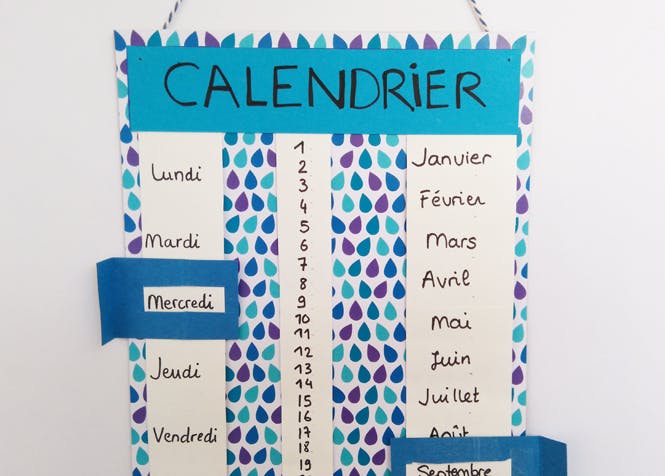 CALENDRIER
Lundi
Mardi
Mercredi
Jeudi
Vendredi
1
2
3
4
5
6
7
8
9
10
11
12
13
14
15
16
17
18
19
Janvier
Février
Mars
Avril
Mai
Juin
Juillet
Août
Septembre